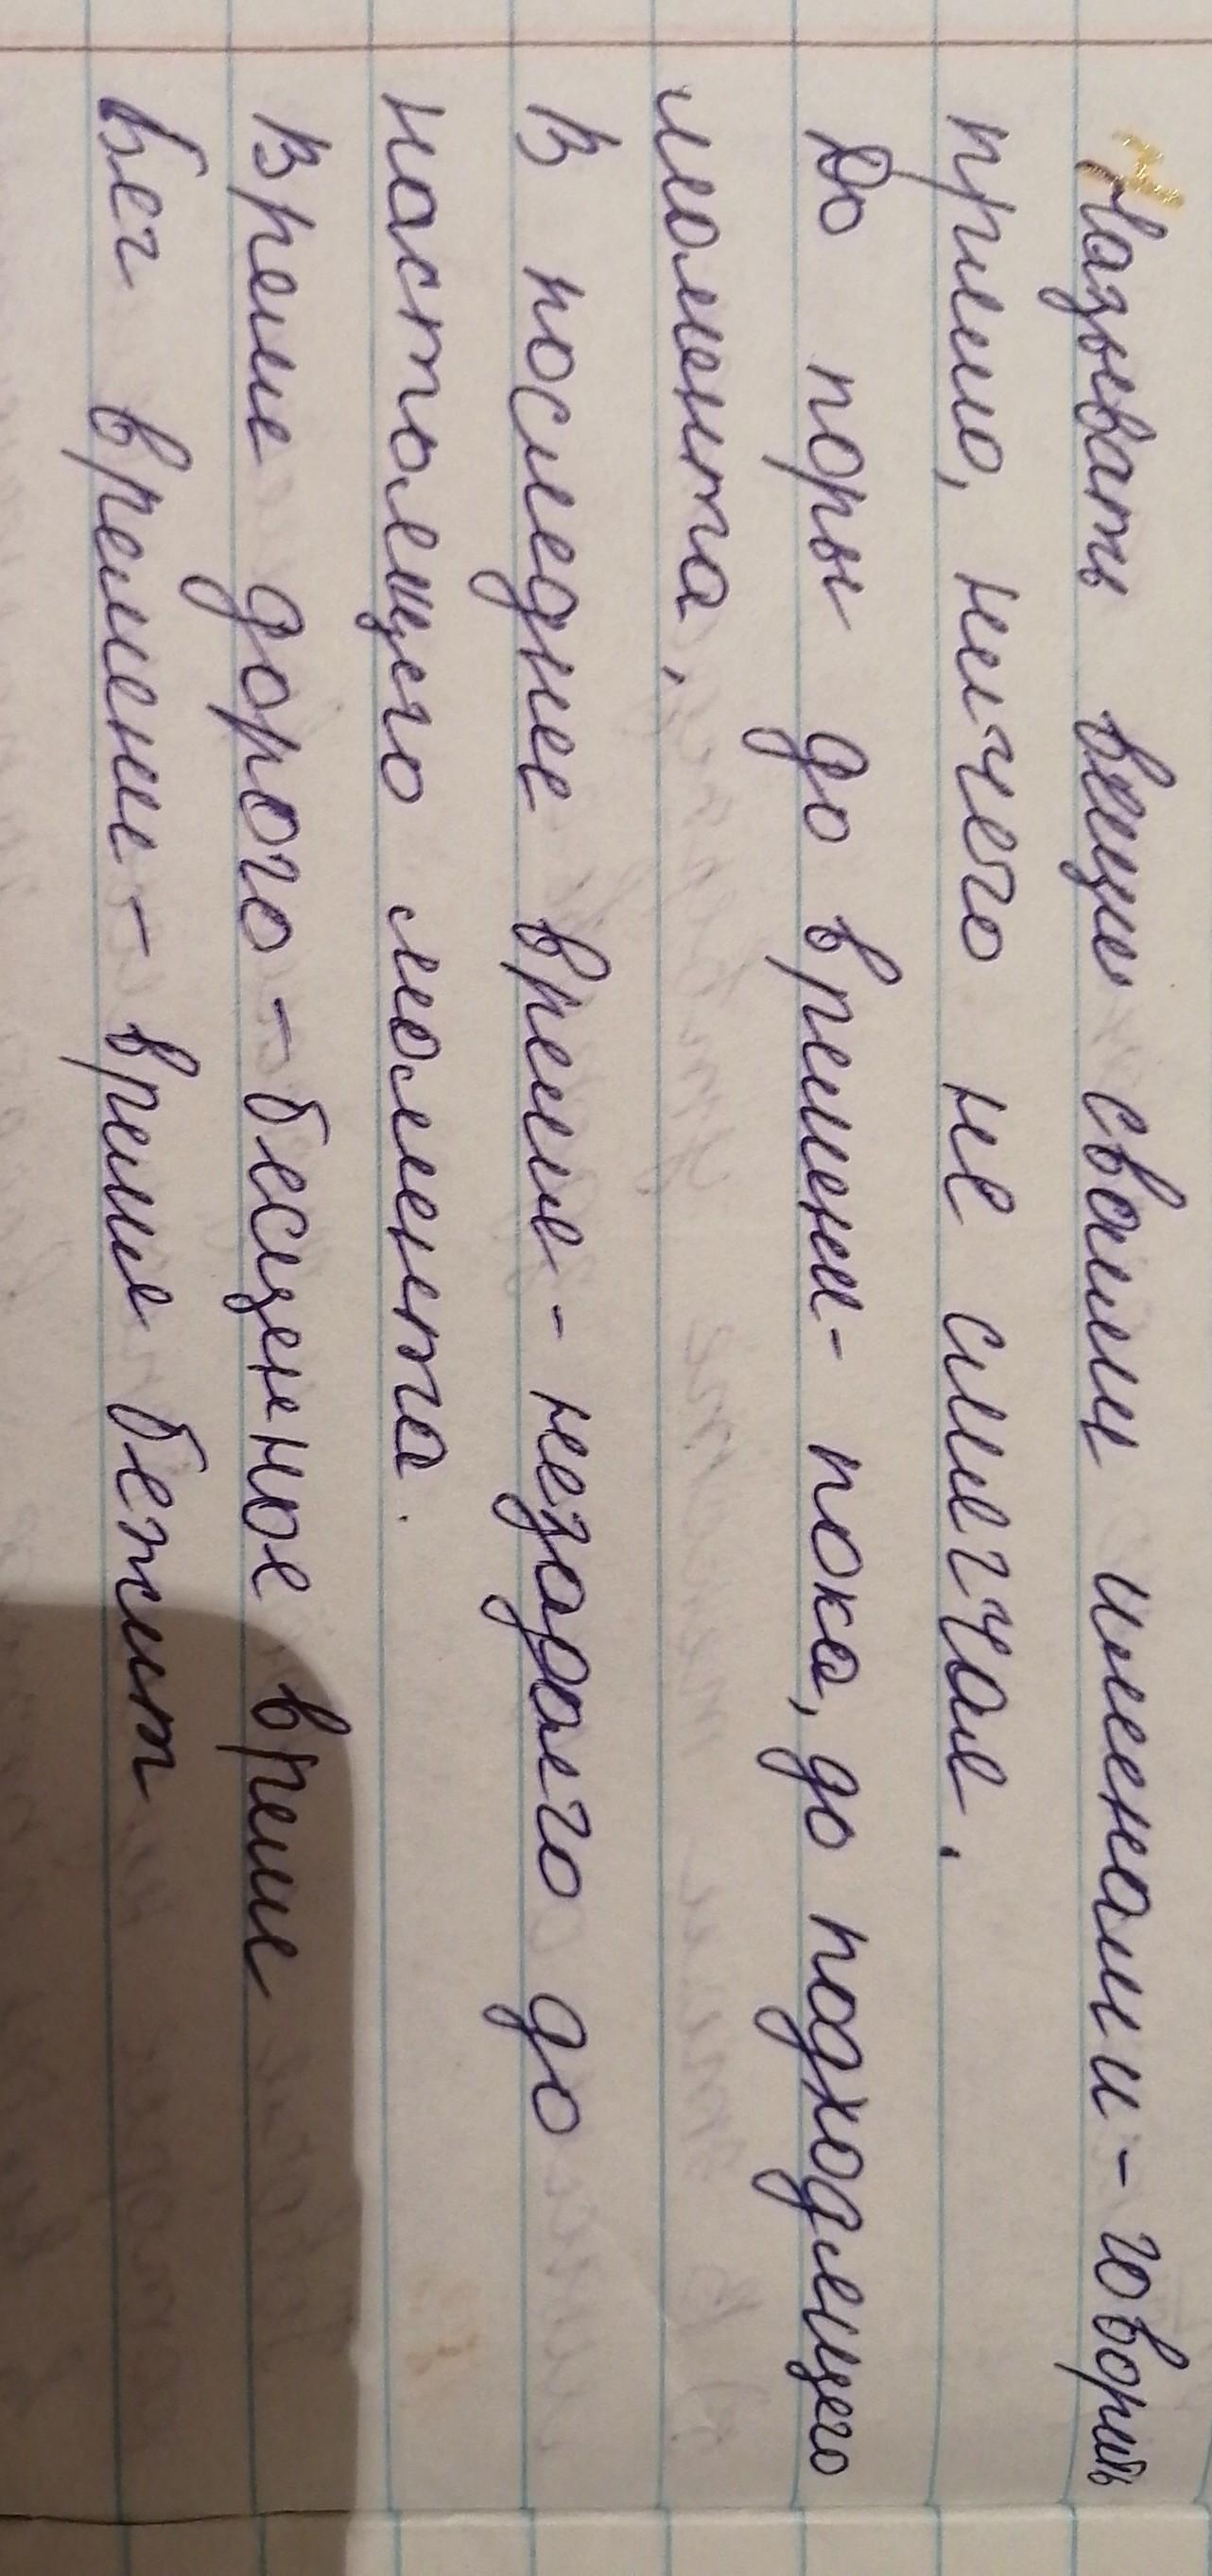 Называть вещи своими именами - говорить
прямо, ничего не смягчая.
До поры до времени - пока, до подходящего
момента,
В последнее время - незадолго до
настоящего момента.
Время дорого - бесценное время
Бег времени - время бежит